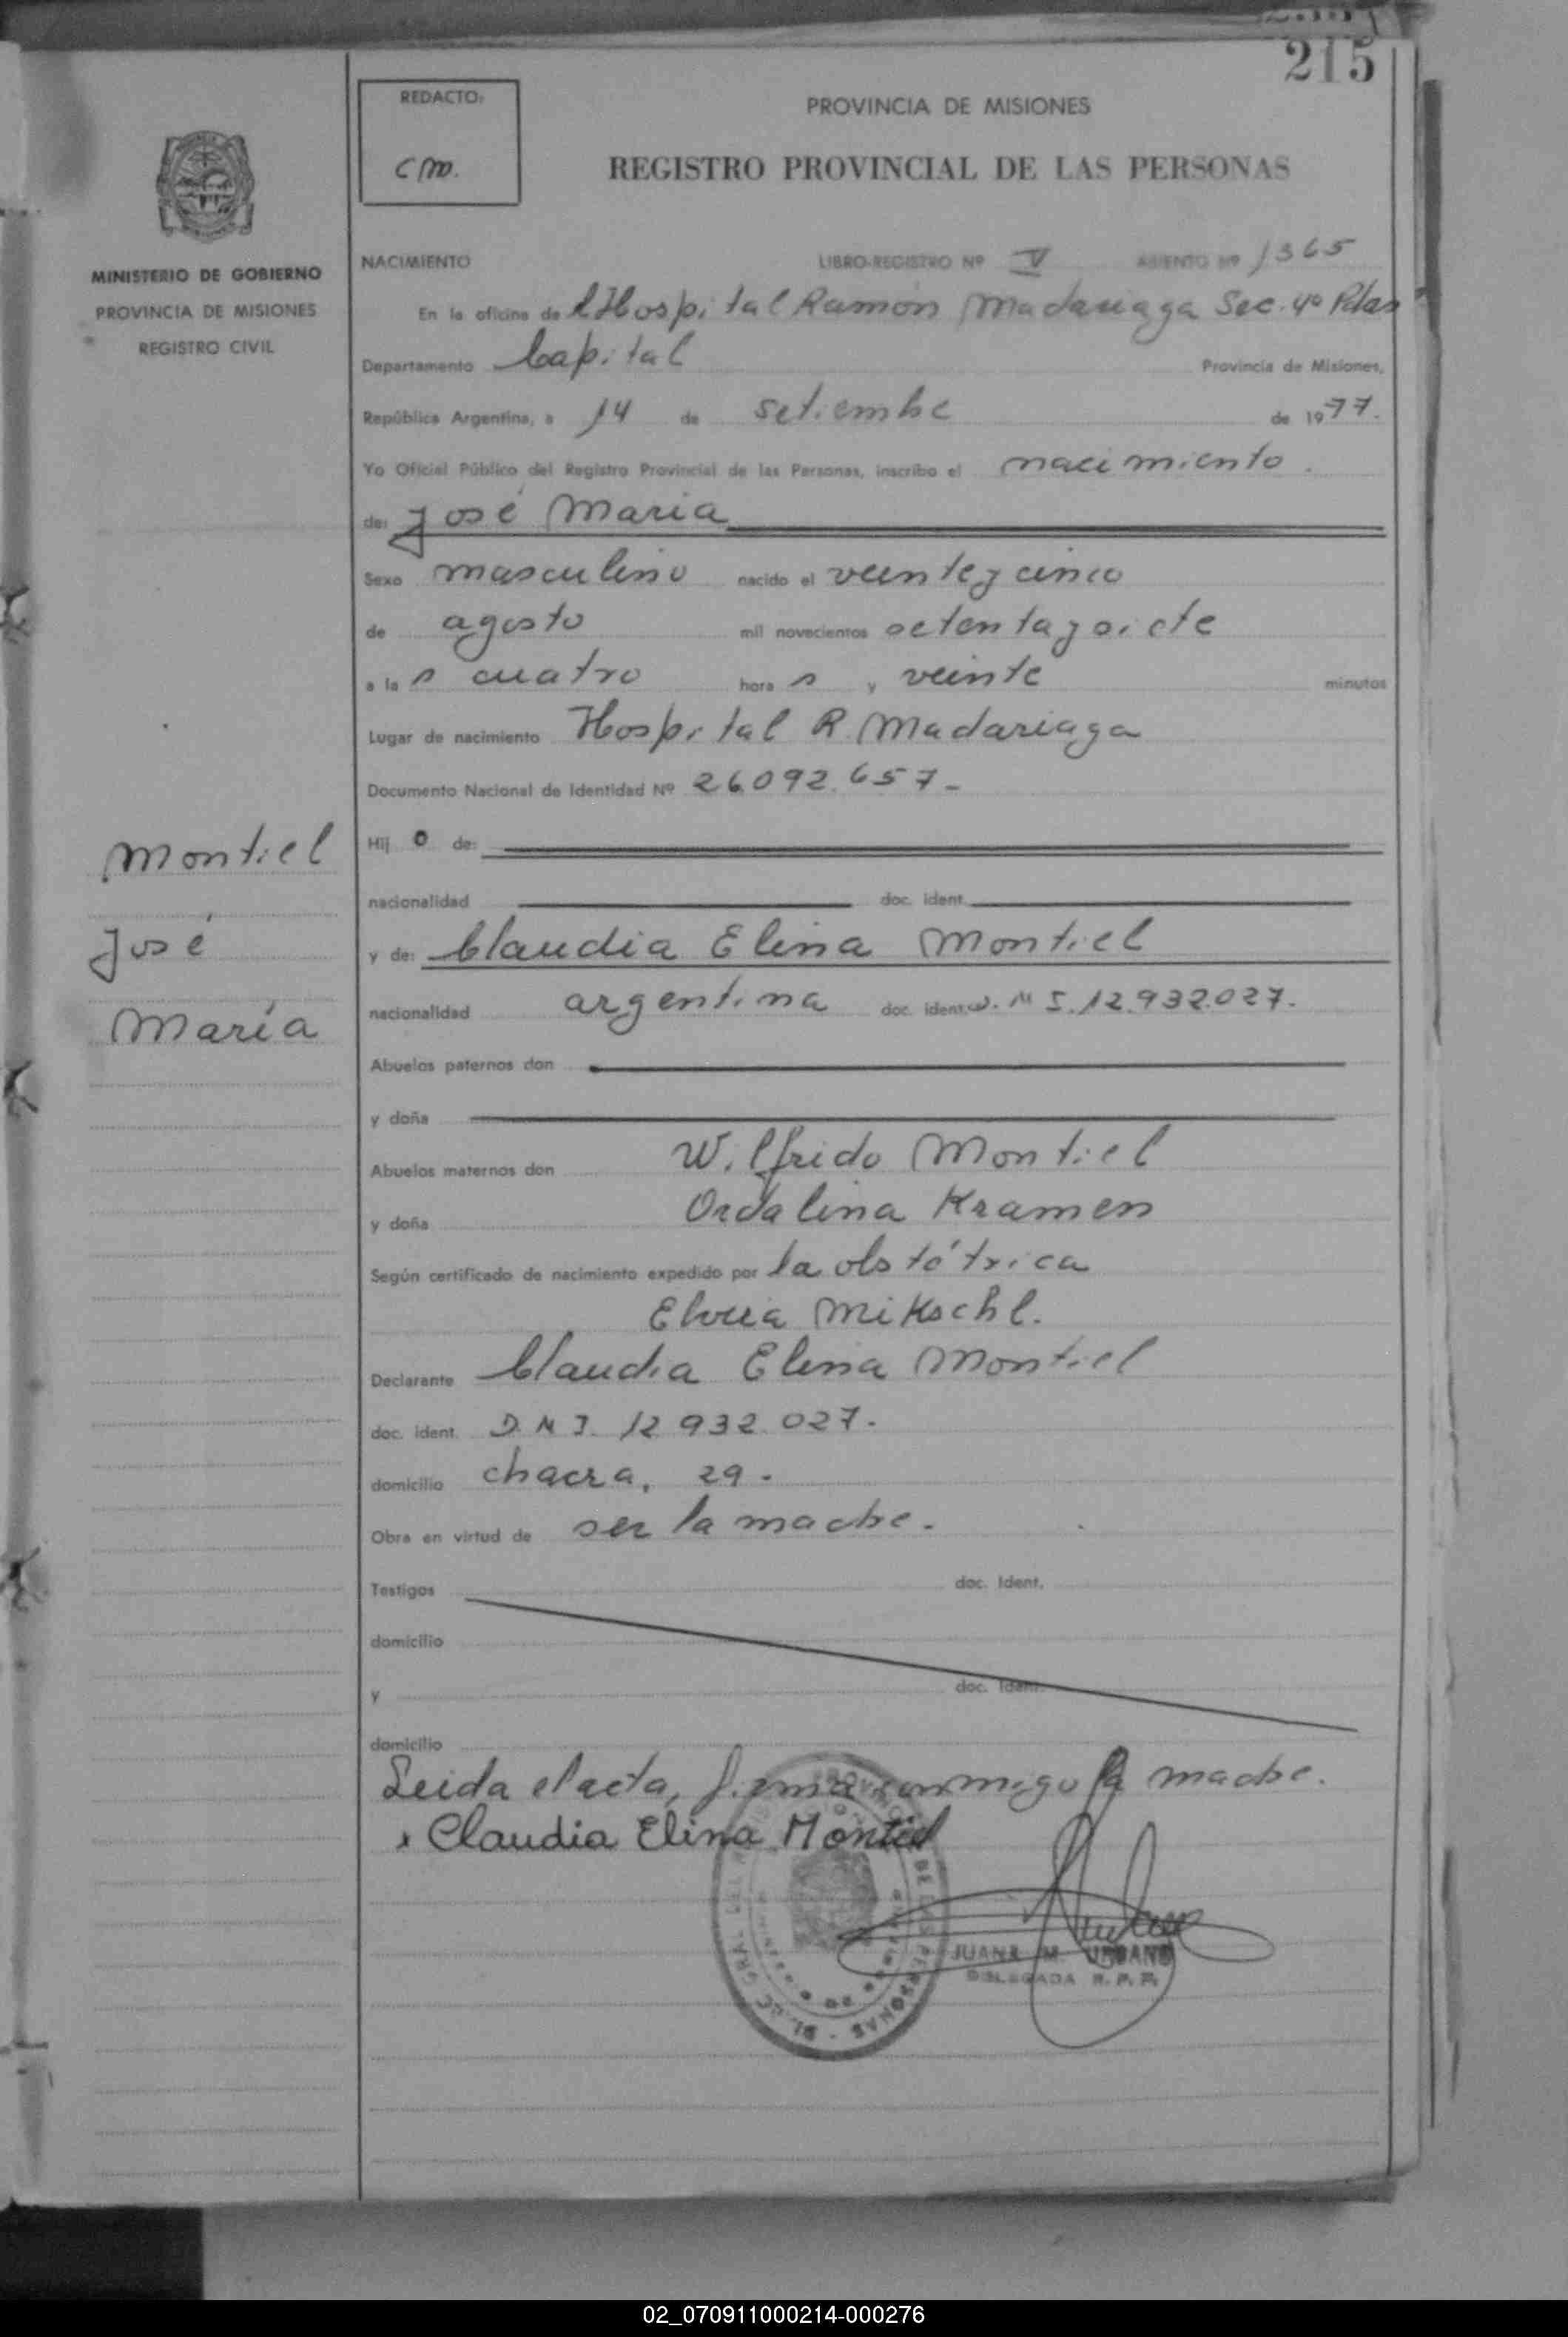 215
REDACTO:
CM.
PROVINCIA DE MISIONES
REGISTRO PROVINCIAL DE LAS PERSONAS
MINISTERIO DE GOBIERNO
PROVINCIA DE MISIONES
REGISTRO CIVIL
NACIMIENTO LIBRO-REGISTRO Nº V ASIENTO Nº 1365
En la oficina de Hospital Ramón Madariaga Sec. 4º Pdas
Departamento Capital Provincia de Misiones,
República Argentina, a 14 de setiembre de 1977.
Yo Oficial Público del Registro Provincial de las Personas, inscribo el nacimiento.
de: José Maria
Sexo masculino nacido el veinte y cinco
de agosto mil novecientos setenta y siete
a la s cuatro hora s y veinte minutos
Lugar de nacimiento Hospital R. Madariaga
Documento Nacional de Identidad Nº 26.092.657-
Hij o de:
nacionalidad doc. ident.
y de: Claudia Elina Montiel
nacionalidad argentina doc. ident. D.N I. 12.932.027.
Montiel
José
María
Abuelos paternos don
y doña
Abuelos maternos don Wilfrido Montiel
y doña Ordalina Kramen
Según certificado de nacimiento expedido por la obstétrica
Elvira Mikschl.
Declarante Claudia Elina Montiel
doc. ident. D.N I. 12 932.027.
domicilio chacra, 29.
Obra en virtud de ser la madre.
Testigos doc. Ident.
domicilio
y doc. Ident.
domicilio
Leida el acta, firma conmigo la madre.
x Claudia Elina Montiel
JUANA M. URBANO
DELEGADA R. P. P.
02_070911000214-000276